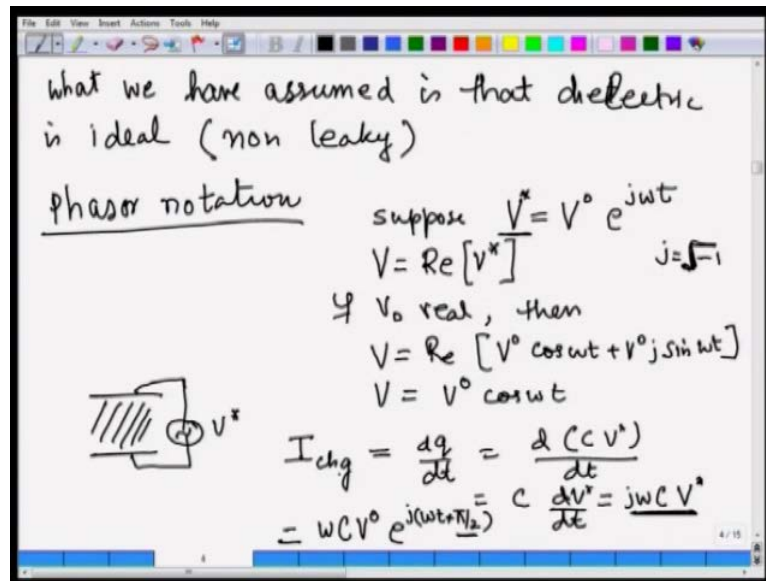 File Edit View Insert Actions Tools Help
what we have assumed is that dielectric
is ideal (non leaky)
Phasor notation
suppose V* = V° e^{jωt}
V = Re [V*]
j = √-1
If V₀ real, then
V = Re [V° cos ωt + V° j sin ωt]
V = V° cos ωt
V*
I_chg = dq/dt = d (C V*)/dt
= C dV*/dt = jωC V*
= ωC V° e^{j(ωt+π/2)}
4 / 15
4